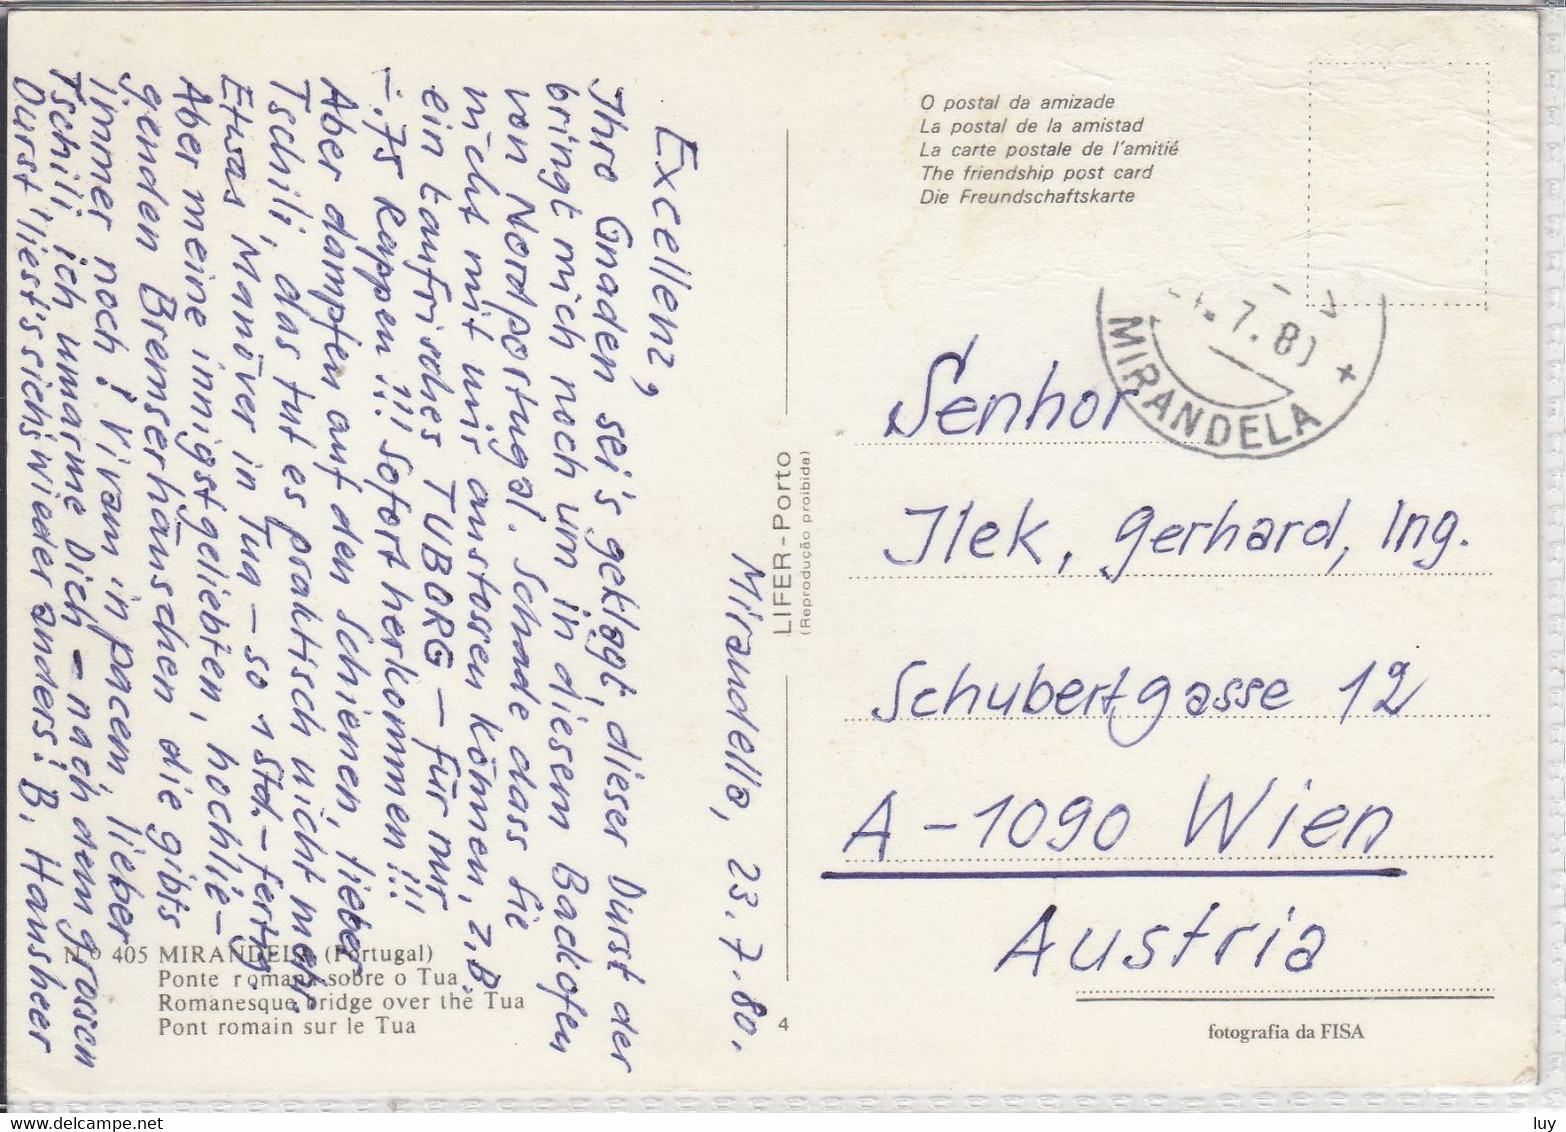 O postal da amizade
La postal de la amistad
La carte postale de l'amitié
The friendship post card
Die Freundschaftskarte
7.80
MIRANDELA
Mirandella, 23.7.80.
Excellenz,
Ihro Gnaden sei's geklagt, dieser Durst der
bringt mich noch um in diesem Backofen
von Nordportugal. Schade dass Sie
nicht mit mir anstossen können, z.B.
ein taufrisches TUBORG – für nur
–.75 Rappen !!! Sofort herkommen!!!
Aber dampfen auf den Schienen, lieber
Tschili, das tut es praktisch nicht mehr.
Etwas Manöver in Tua – so 1 Std. – fertig
Aber meine innigstgeliebten, hochlie-
genden Bremserhäuschen die gibts
immer noch! Vivam in pacem, lieber
Tschili ich umarme Dich – nach dem grossen
Durst liest's sich's wieder anders! B. Hansheer
LIFER - Porto
(Reprodução proibida)
4
Senhor
Ilek, Gerhard, Ing.
Schubertgasse 12
A-1090 Wien
Austria
N.º 405 MIRANDELA (Portugal)
Ponte romana sobre o Tua
Romanesque bridge over the Tua
Pont romain sur le Tua
fotografia da FISA
luy